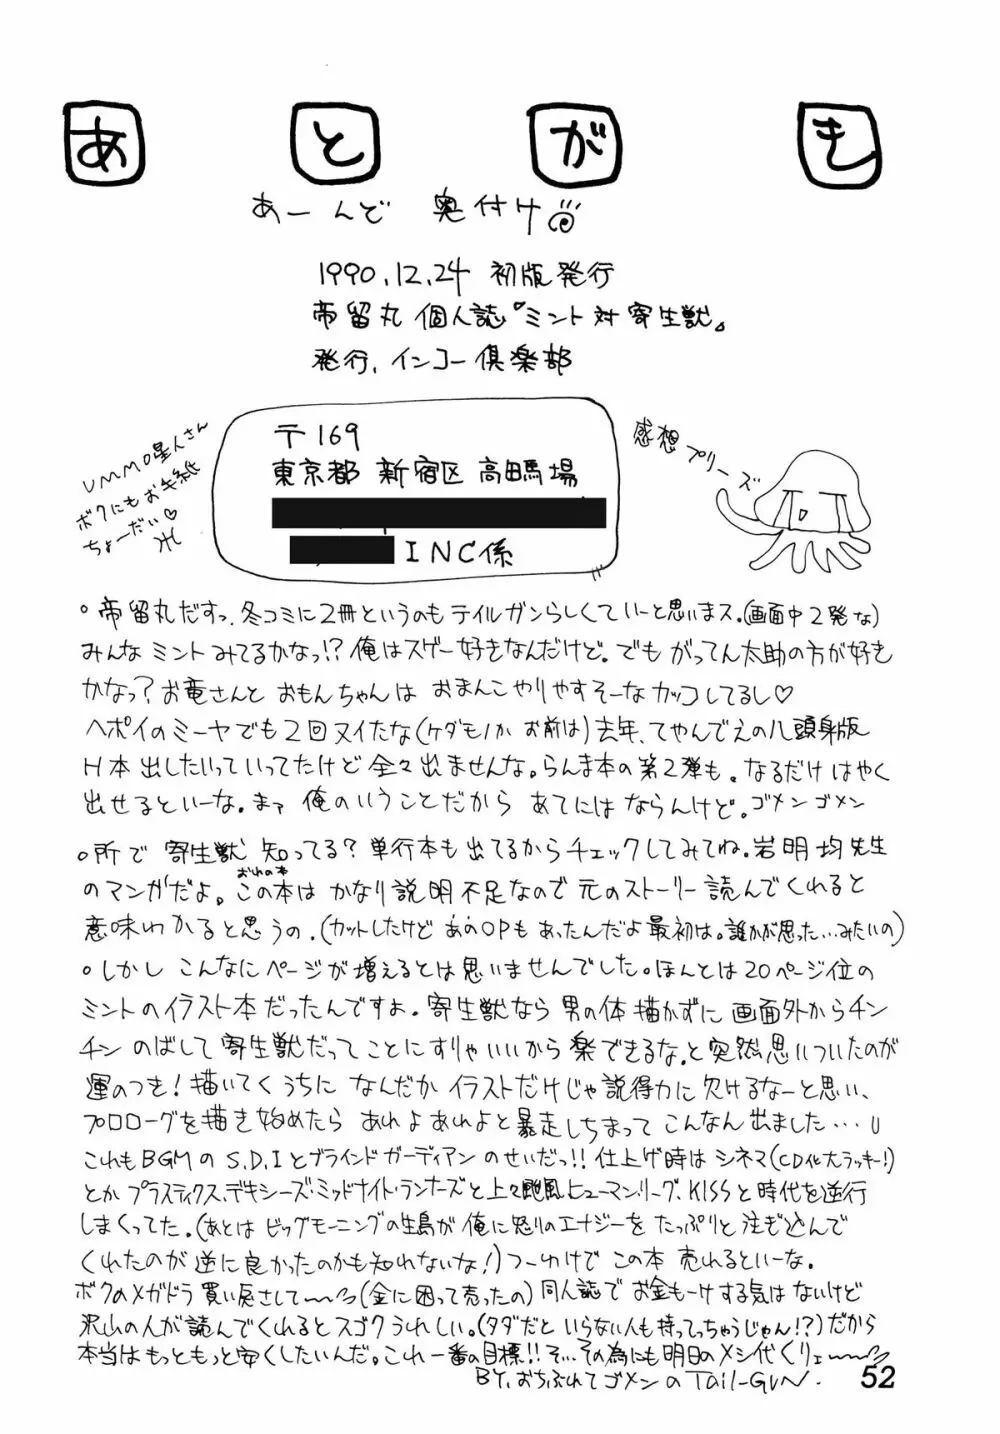 あとがき
あーんど 奥付け
1990.12.24 初版発行
帝留丸 個人誌『ミント対寄生獣』
発行、インコー倶楽部
UMMO星人さん
ボクにもお手紙
ちょーだい♡
〒169
東京都 新宿区 高田馬場
INC係
感想プリーズ
。帝留丸だすっ、冬コミに2冊というのもテイルガンらしくていーと思いまス。(画面中2発な)
みんなミントみてるかなっ!?俺はスゲー好きなんだけど。でもがってん太助の方が好き
かなっ?お竜さんとおもんちゃんは おまんこやりやすそーなカッコしてるし♡
ヘポイのミーヤでも2回ヌイたな(ケダモノか お前は)去年、てやんでえの八頭身版
H本出したいっていってたけど全々出ませんな。らんま本の第2弾も。なるだけはやく
出せるといーな。まァ俺のいうことだから あてにはならんけど。ゴメンゴメン
。所で 寄生獣 知ってる?単行本も出てるからチェックしてみてね。岩明均先生
のマンガだよ。この本はかなり説明不足なので元のストーリー読んでくれると
意味わかると思うの。(カットしたけどあのOPもあったんだよ最初は。誰かが思った…みたいの)
。しかし こんなにページが増えるとは思いませんでした。ほんとは20ページ位の
ミントのイラスト本だったんですよ。寄生獣なら男の体描かずに画面外からチン
チンのばして寄生獣だってことにすりゃいいから楽できるな。と突然思いついたのが
運のつき!描いてくうちに なんだか イラストだけじゃ説得力に欠けるなーと思い、
プロローグを描き始めたら あれよあれよと暴走しちまって こんなん出ました…
これもBGMのS.D.Iとブラインドガーディアンのせいだっ!!仕上げ時はシネマ(CD化大ラッキー!)
とかプラスティクス、デキシーズ・ミッドナイト・ランナーズと上々颱風、ヒューマン・リーグ、KISSと時代を逆行
しまくってた。(あとは ビッグモーニングの生島が俺に怒りのエナジーを たっぷりと注ぎ込んで
くれたのが逆に良かったのかも知れないな!)つーわけで この本 売れるといーな。
ボクのメガドラ買い戻さして〜(金に困って売ったの)同人誌でお金もーけする気はないけど
沢山の人が読んでくれるとスゴクうれしい。(タダだといらない人も持ってっちゃうじゃん!?)だから
本当はもっともっと安くしたいんだ。これ一番の目標!!そ…その為にも明日のメシ代くりェ〜
BY.おちぶれてゴメンのTail-GuN.
52